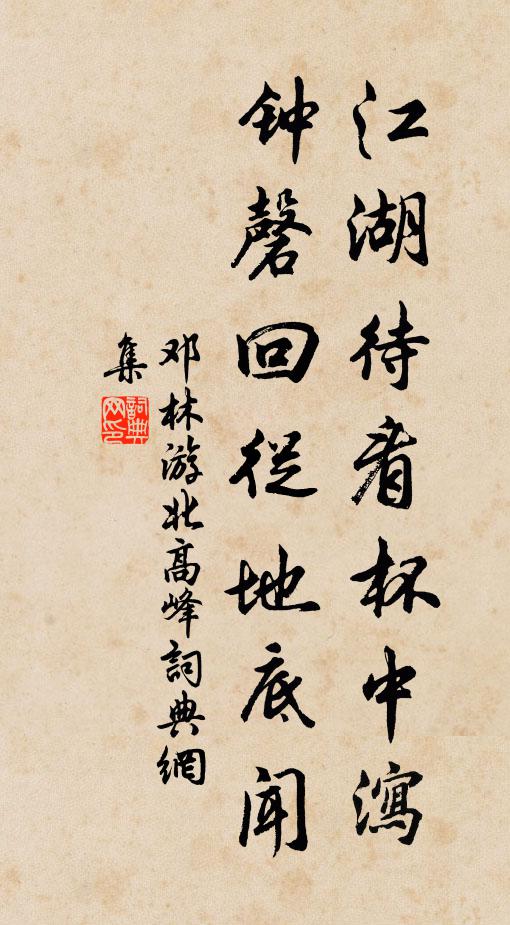 江湖待看杯中瀉
钟磬回從地底闻
邓林游北高峰詞典網
集
詞典网印